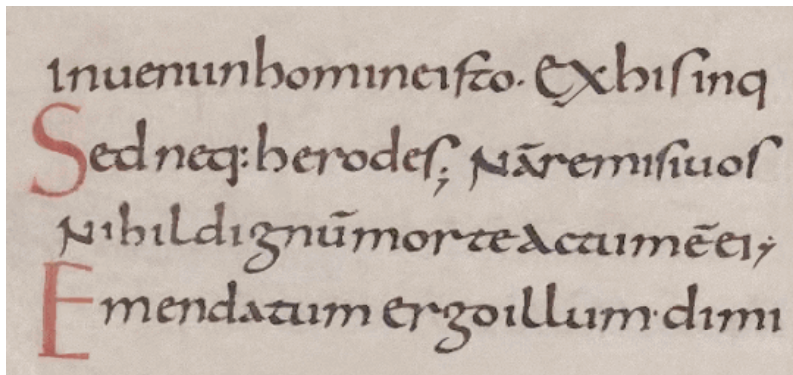 inueni in homine isto. Ex his in q
Sed neq: herodes; Nā remisi uos
Nihil dignū morte actum ē ei;
Emendatum ergo illum· dimi